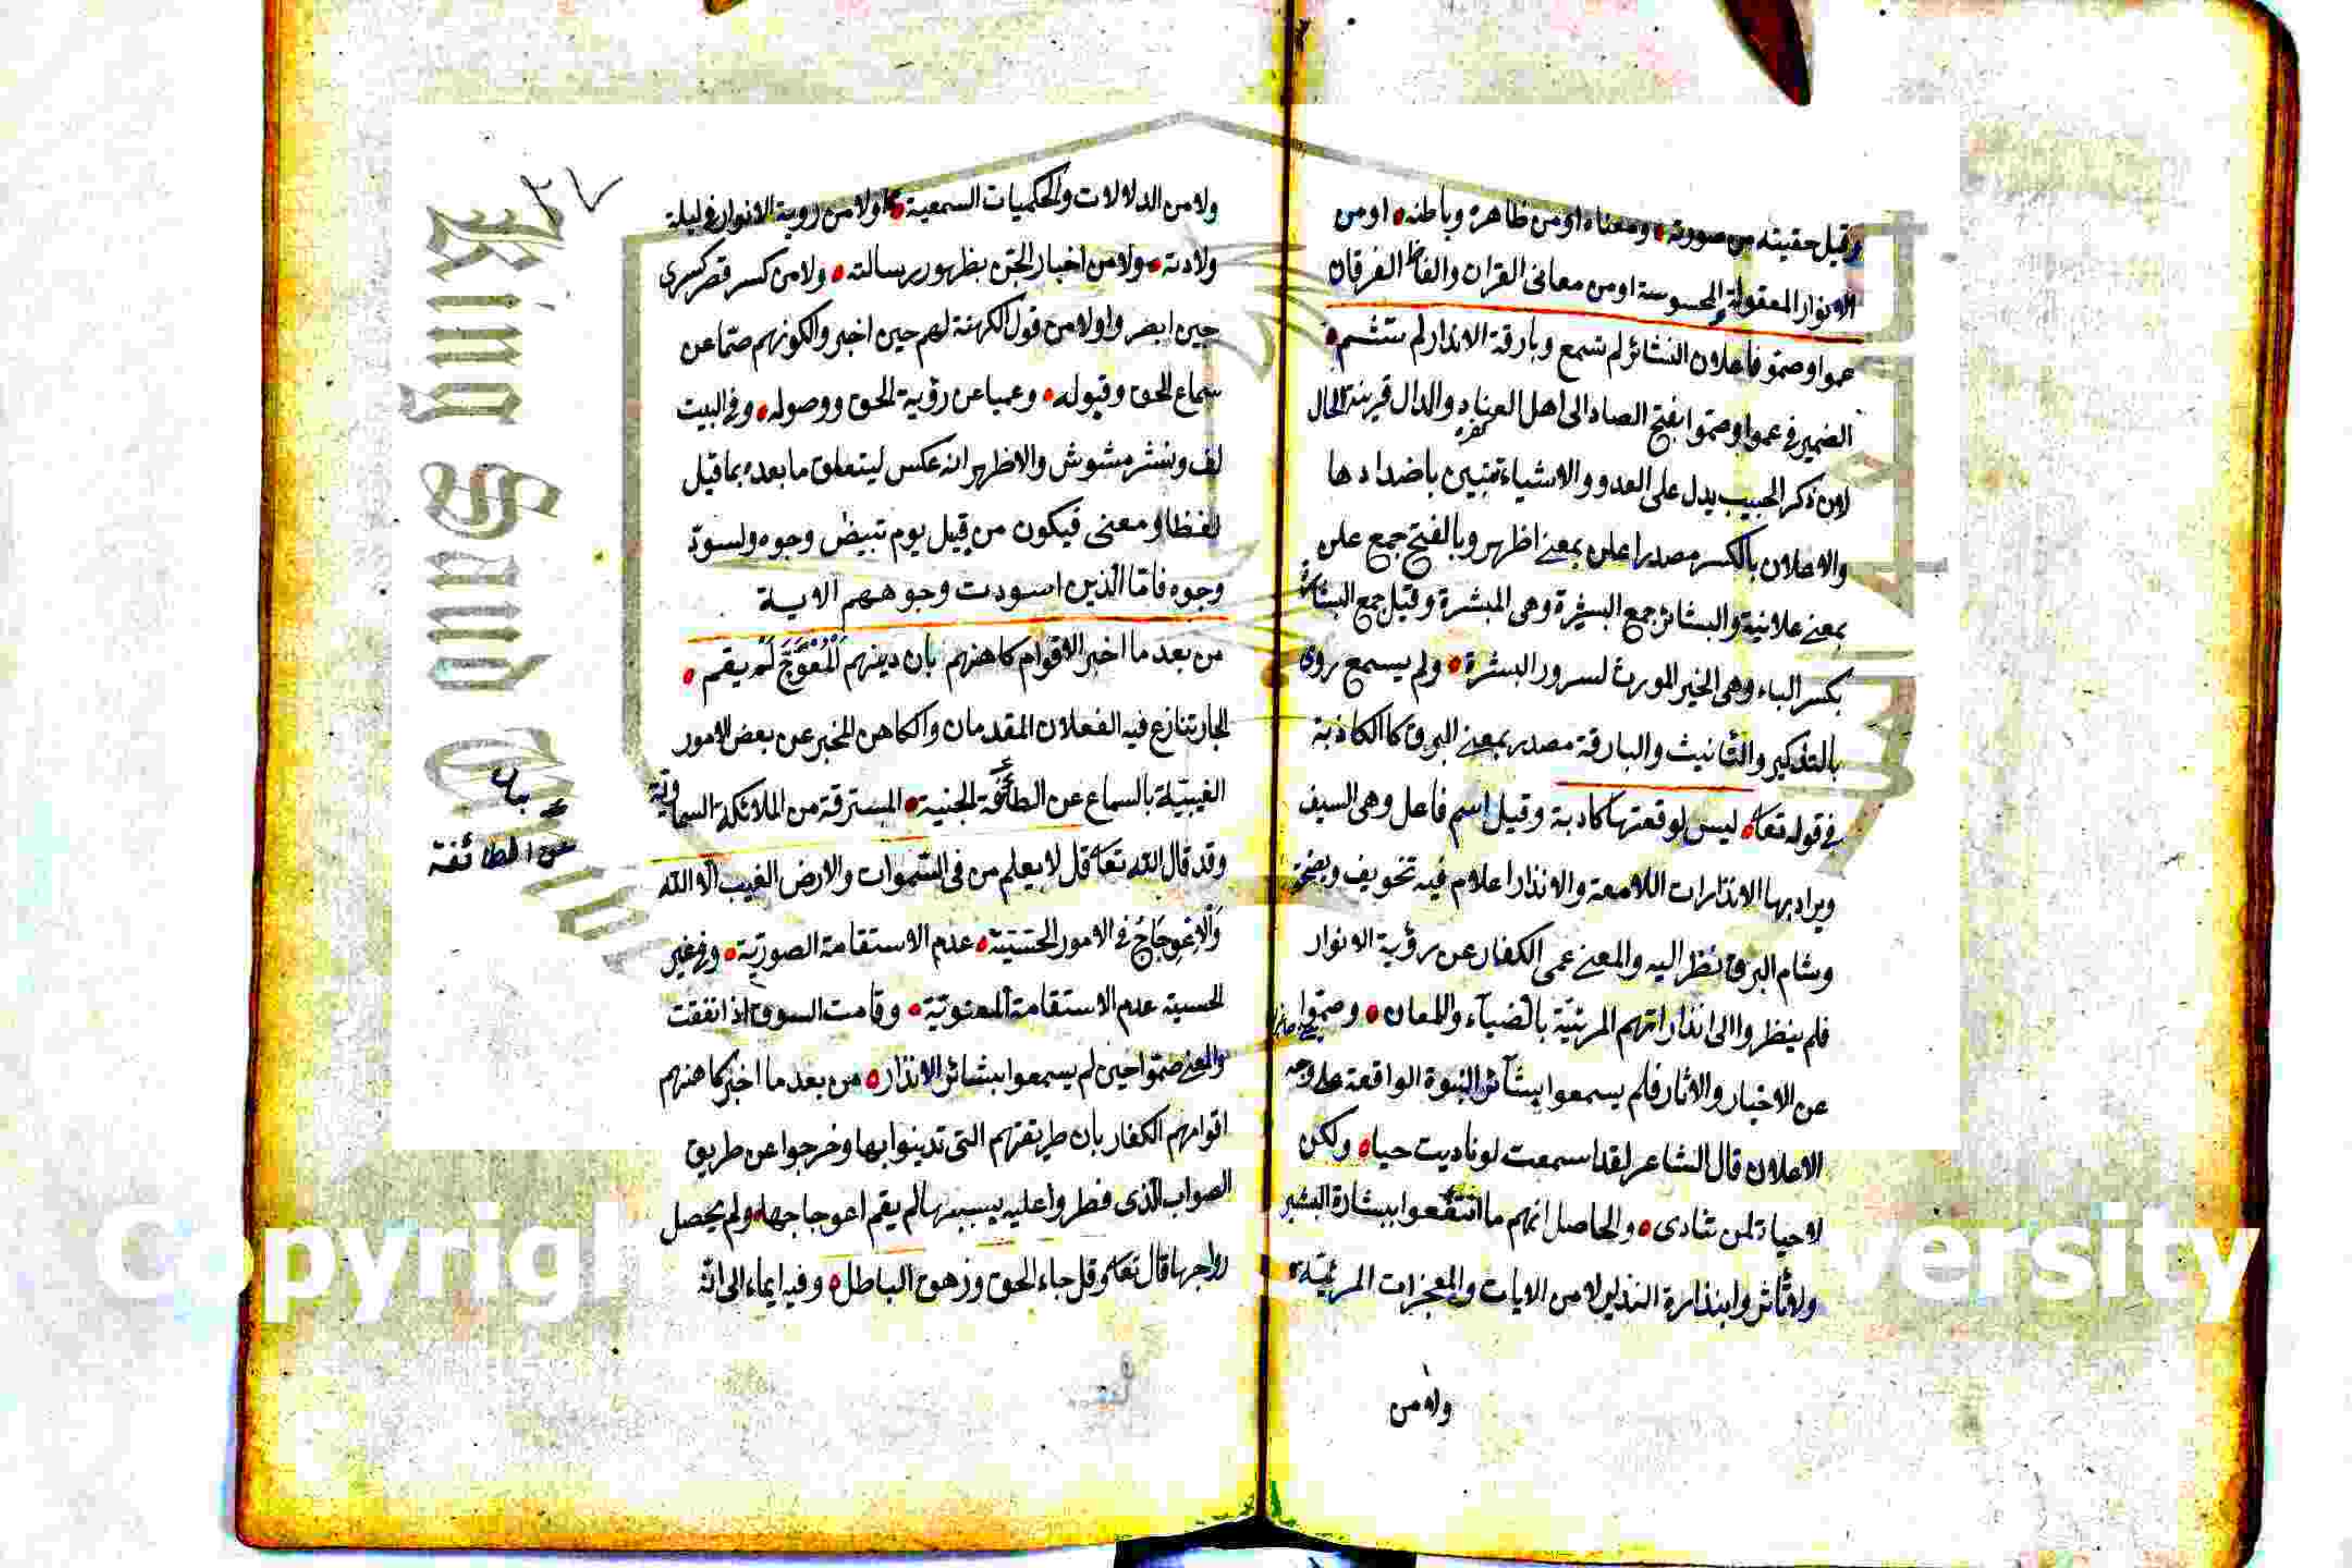 وقيل حقيته من صورته ومعناه او من ظاهره وباطنه او من
الانوار المعقولة والمحسوسة او من معانى القران والفاظ الفرقان
عموا وصموا فاعلان البشائر لم تسمع وبارقة الانذار لم تشم
الضمير فى عموا وصموا بفتح الصاد الى اهل العناد والدال قرينة الحال
او من ذكر الحبيب يدل على العدو والاشياء تتبين باضدادها
والاعلان بالكسر مصدر اعلن بمعنى اظهر وبالفتح جمع علن
بمعنى علانية والبشائر جمع البشيرة وهى المبشرة وقيل جمع البشارة
بكسر الباء وهى الخبر المورث لسرور البشرة ولم يسمع روى
بالتذكير والتانيث والبارقة مصدر بمعنى البرق كالكاذبة
فى قوله تعا ليس لوقعتها كاذبة وقيل اسم فاعل وهى السيف
ويراد بها الانذارات اللامعة والانذار اعلام فيه تخويف
وشام البرق نظر اليه والمعنى عمى الكفار عن رؤية الانوار
فلم ينظروا الى انذاراتهم المرئية بالضياء واللمعان وصموا
عن الاخبار والاثار فلم يسمعوا بشائر النبوة الواقعة على وجه
الاعلان قال الشاعر لقد اسمعت لو ناديت حيا ولكن
لا حياة لمن تنادى والحاصل انهم ما انتفعوا ببشارة البشير
ولا تاثروا بنذارة النذير لا من الايات والمعجزات المرئية
ولا من
٢٧
ولا من الدلالات والحكميات السمعية ولا من روية الانوار فى ليلة
ولادته ولا من اخبار الجن بظهور رسالته ولا من كسر قصر كسرى
حين ابصروا ولا من قول الكهنة لهم حين اخبروا لكونهم صما عن
سماع الحق وقبوله وعميا عن رؤية الحق ووصوله وفى البيت
لف ونشر مشوش والاظهر انه عكس ليتعلق ما بعده بما قيل
لفظا ومعنى فيكون من قبيل يوم تبيض وجوه وتسود
وجوه فاما الذين اسودت وجوههم الاية
من بعد ما اخبر الاقوام كاهنهم بان دينهم المعوج لم يقم
الجار تنازع فيه الفعلان المقدمان والكاهن المخبر عن بعض الامور
الغيبية بالسماع عن الطائفة الجنية المسترقة من الملائكة السماوية
عن الطائفة
وقد قال الله تعا قل لا يعلم من فى السموات والارض الغيب الا الله
والاعوجاج فى الامور الحسية عدم الاستقامة الصورية وفى غير
الحسية عدم الاستقامة المعنوية وقامت السوق اذا نفقت
والمعنى صموا حين لم يسمعوا بشائر الانذار من بعد ما اخبر كاهنهم
اقوامهم الكفار بان طريقتهم التى تدينوا بها وخرجوا عن طريق
الصواب الذى فطروا عليه بسببها لم يقم اعوجاجها ولم يحصل
رواجها قال تعا وقل جاء الحق وزهق الباطل وفيه ايماء الى انه
King Saud
Copyrigh versity